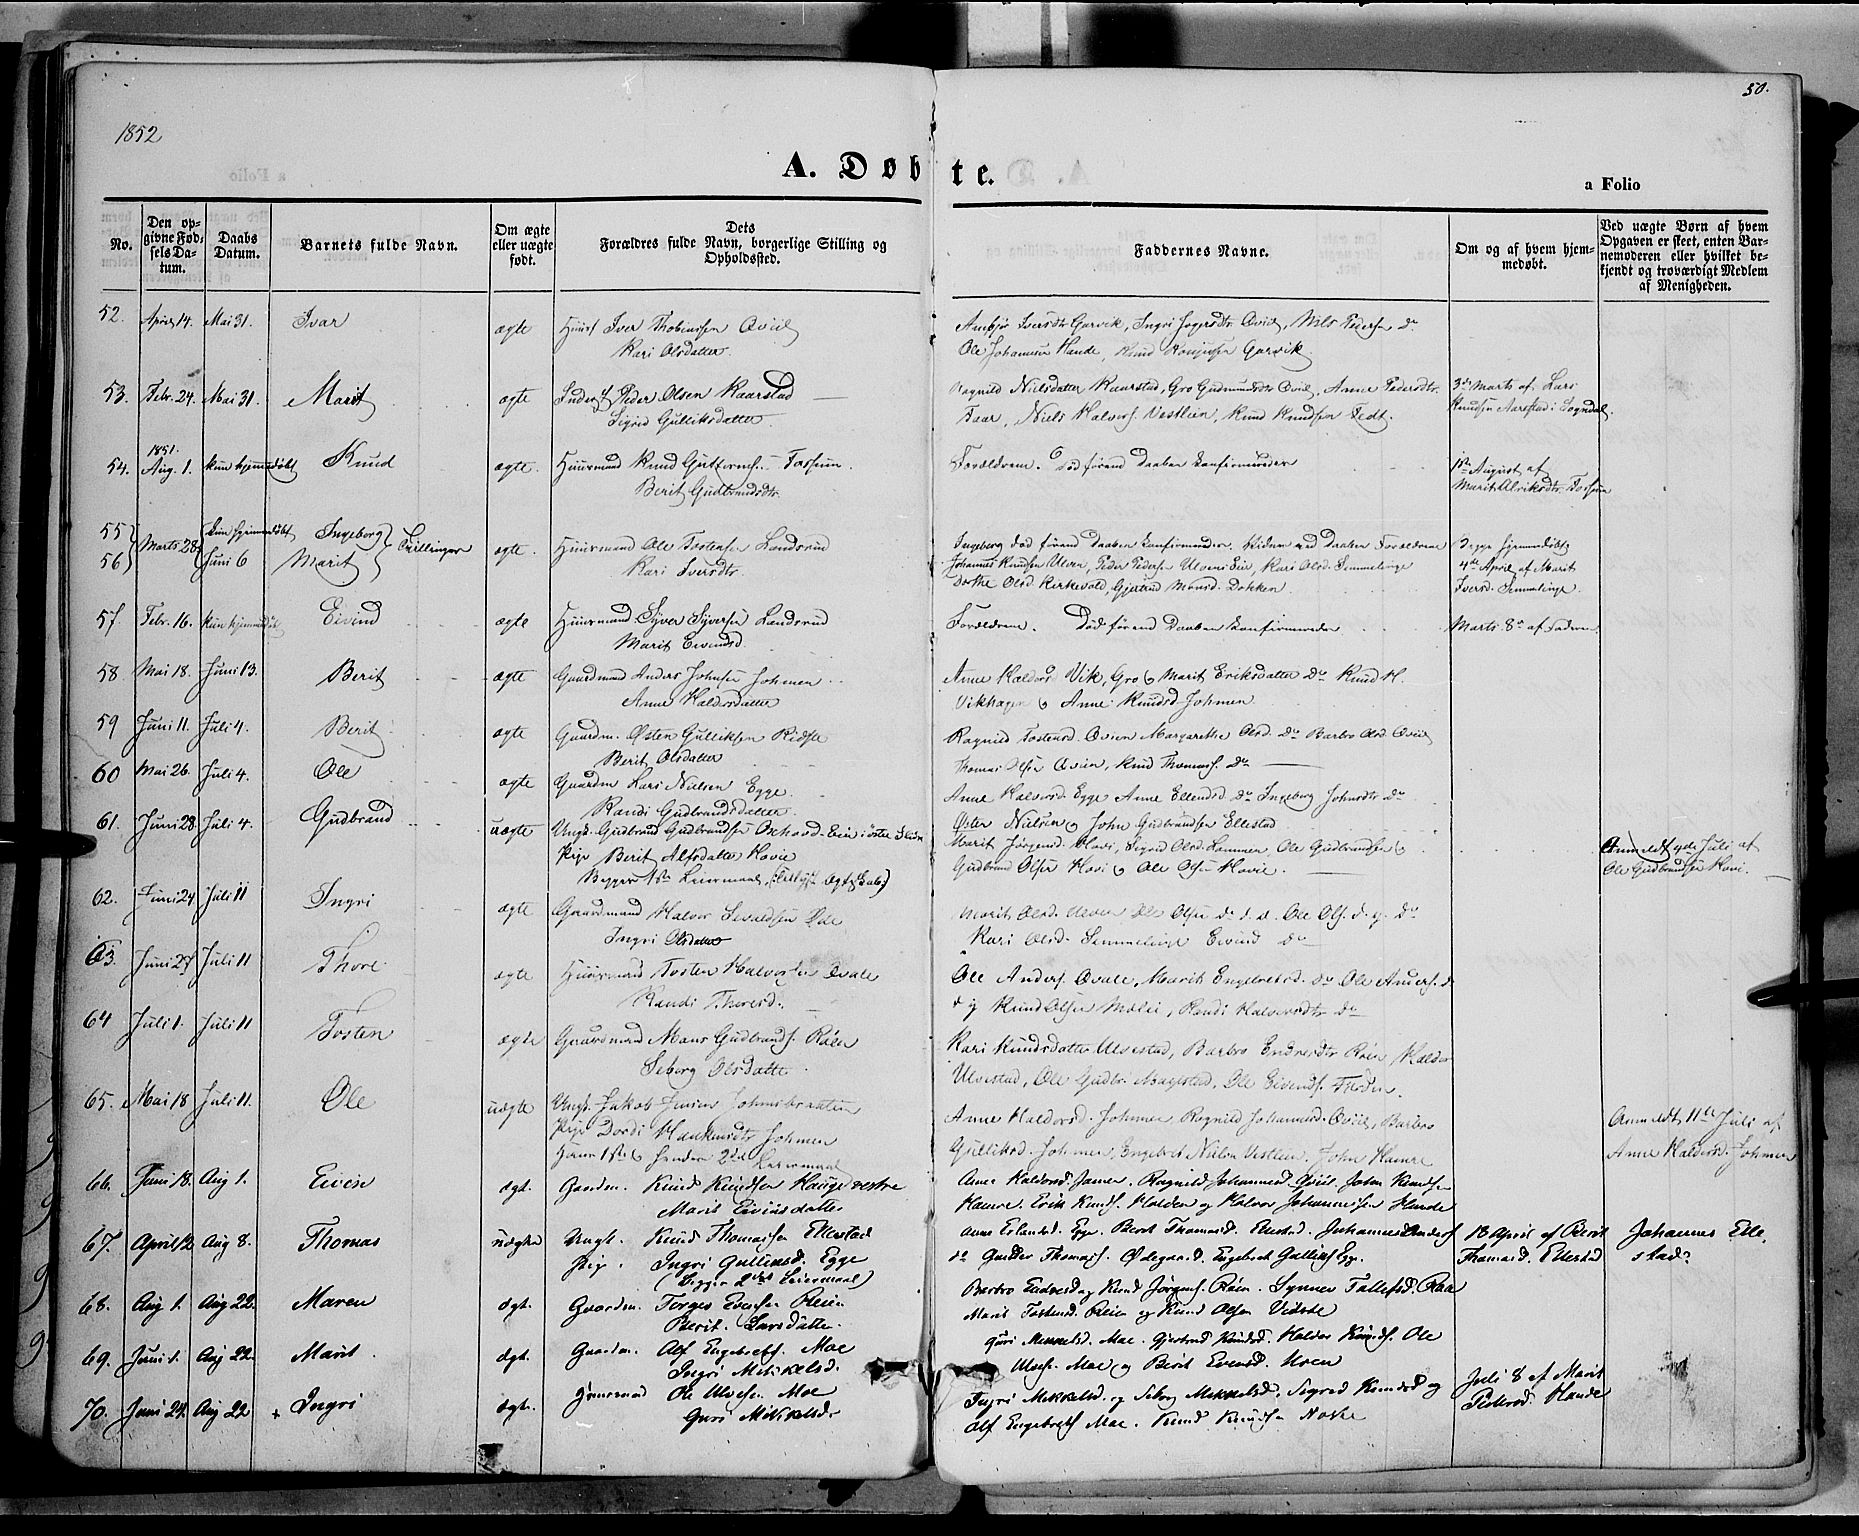 1852
50.
A. Døbte.
a Folio
No.
Den opgivne Fødselsdatum.
Daabs Datum.
Barnets fulde Navn.
Om ægte eller uægte født.
Dets Forældres fulde Navn, borgerlige Stilling og Opholdssted.
Faddernes Navne.
Om og af hvem hjemmedøbt.
Ved uægte Børn af hvem Opgaven er skeet, enten Barnemoderen eller hvilket bekjendt og troværdigt Medlem af Menigheden.
52. April 14. Mai 31. Ivar ægte Iver Thobiassen Øviid
Kari Olsdatter.
Iversdtr Garvik, Ingri Øviid, Nils Pedersen do
Ole Johannesen Hande, Knud Garvik.
53. Febr. 24. Mai 31. Marit ægte Peder Olsen Kaarstad
Sigrid Gulliksdatter.
Ragnild Nielsdatter Kaarstad, Gro Gudmundsdtr Øviid, Anne Pedersdtr.
Faar, Niels Halvors. Vestlien, Knud Knudsen Tedt.
3die Marts af Lars
Knudsen Aarestad i Sogndal.
54. 1851. Aug. 1. kun hjemmedøbt Knud ægte. Huusmand Knud Guttorms. Fossum.
Berit Gudbrandsdtr.
Forældrene. Død førend Daaben konfirmeredes
1ste August af
Marit Alriksdtr. Fossum
55 56 Marts 28 kun hjemmedøbt Ingeborg Tvillinger
Juni 6 Marit ægte. Huusmand Ole Tostensen Landsrud
Kari Iversdtr.
Ingeborg død førend Daaben konfirmeredes. Faddere ved Daaben Forældrene
Johannes Knudsen Ulven, Peder Pedersen Ulvens Eie, Kari Olsd. Semmelinge
Dorthe Olsd. Kirkevold, Gjertrud Monsd. Dokken
Begge hjemmedøbt
4de April af Marit
Iversd. Semmelinge.
57. Febr. 16. kun hjemmedøbt Eivind ægte Huusmand Syver Syversen Landsrud
Marit Eivindsd.
Forældrene. Død førend Daaben konfirmeredes
Marts 8de af Faderen
58 Mai 18. Juni 13. Berit ægte Gaardmand Anders Johnsen Johmen
Anne Haldorsdatter
Anne Haldorsd Vik, Gro & Marit Eriksdatter do Knud H.
Vikhagen & Anne Knudsd Johmen
59 Juni 11. Juli 4. Berit ægte Gaardm. Østen Gulliksen Ridste
Berit Olsdatter
Ragnild Tostensd. Øvien Margarethe Olsd. do Barbro Olsd. Øviid
Thomas Olsen Øvien, Knud Thomas. do
60 Mai 26. Juli 4. Ole ægte Gaardm Lars Nielsen Egge
Randi Gudbrandsdatter
Anne Halvorsd. Egge Anne Ellendsd do Ingeborg Johnsdtr do
Østen Nielsen & John Gudbrandsen Ellestad
61. Juni 28. Juli 4. Gudbrand uægte Ungk. Gudbrand Gudbrandsen i østre Slidre
Pige Berit Alfsdatter Hovie
Begges 1ste Leiermaal,
Marit Jørgensd. Hovi, Sigrid Olsd. Lommen, Ole Gudbrandsen &
Gudbrand Olsen Hovi & Ole Olsen Hovie.
Anmeldt 4de Juli af
Ole Gudbrandsen Hovi.
62. Juni 24 Juli 11 Ingri ægte Gaardmand Halvor Sivaldsen Øde
Ingri Olsdatter
Marit Olsd. Ole Olsen do d. æ. Ole Ols. d. y. do
Kari Olsd. Semmelinge Eivind do
63. Juni 27 Juli 11 Thore ægte Huusmand Tosten Halvorsen Qvale
Randi Thoresd.
Ole Anders. Qvale, Marit Engebretsd. do Ole Anders. d.
d y Knud Olsen Mølei, Randi Halvorsdtr do
64 Juli 1. Juli 11 Tosten ægte Gaardmand Mons Gudbrands. Røien
Seborg Olsdatter
Kari Knudsdatter Ulvestad, Barbro Endresdtr Røien Haldor
Ulvestad, Ole Gudbr. Magistad, Ole Eivends.
65. Mai 18 Juli 11. Ole uægte Ungk. Jakob Johmsbraaten
Pige Dordi Johmen
Hans 1ste & hendes 2det Leiermaal
Anne Haldorsd. Johmen, Ragnild Johannesd. Øviid, Barbro
Gulliksd. Johmen, Engebret Nielsen Vestlien, John Hamre
Anmeldt 11te Juli af
Anne Haldorsd. Johmen
66. Juni 18. Aug 1. Eivin ægt. Gaardm. Knud Knudsen Hauge vestre
Marit Eivinsdatter
Anne Haldorsd. Jomen. Ragnild Johannesd. John Knudsen
Hamre. Erik Knuds. Halden og Halvor Johannesen Hande
67. April 12 Aug 8. Thomas uægte Ungk. Knud Thomassen Ellestad
Pige. Ingri Gullensd. Egge
(Begges 2det Leiermaal)
Anne Erlandsd. Egge. Berit Thomasd. Ellestad. Johannes Anders.
do Gulder Thomass. Ødegaard. Engebret Gulliks Egge.
18 April af Berit
Thomasd. Ellestad
Johannes Elle-
stad.
68. Aug 1. Aug 22. Maren ægt. Gaardm. Torger Evensen Reien
Berit Larsdatter.
Barbro Endresd og Knud Jørgens. Røien. Synnev Tollefsd. Roa
Marit Tostensd. Reien og Knud Olsen Vidste
69. Juni 1. Aug 22. Marit. ægt. Gaardm. Alf Engebrets. Moe
Ingri Mikkelsd.
Guri Mikkelsd. Moe. Gjertrud Knudsd. Haldor Knuds. Ole
Ulvess. Moe og Berit Evensd. Uren
70. Juni 24. Aug 22 + Ingri ægt. Huusmand Ole Ulvesen Moe
Guri Mikkelsd.
Ingri Mikkelsd. og Seborg Mikkelsd. Sigrid Knudsd og
Alf Engebrets Moe. Knud Knudsen Noske
Juli 8 af Marit
Pedersd. Hande